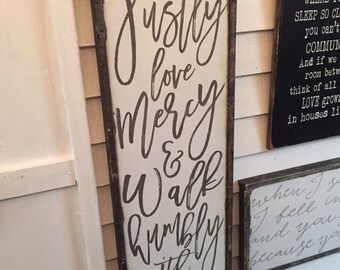 Justly
love
Mercy
&
Walk
humbly
ith
WHERE
SLEEP SO CL
you can't
COMMUN
And if we
room betwe
think of all
LOVE grows
in houses li
when I s
I fell in
and you
because yo